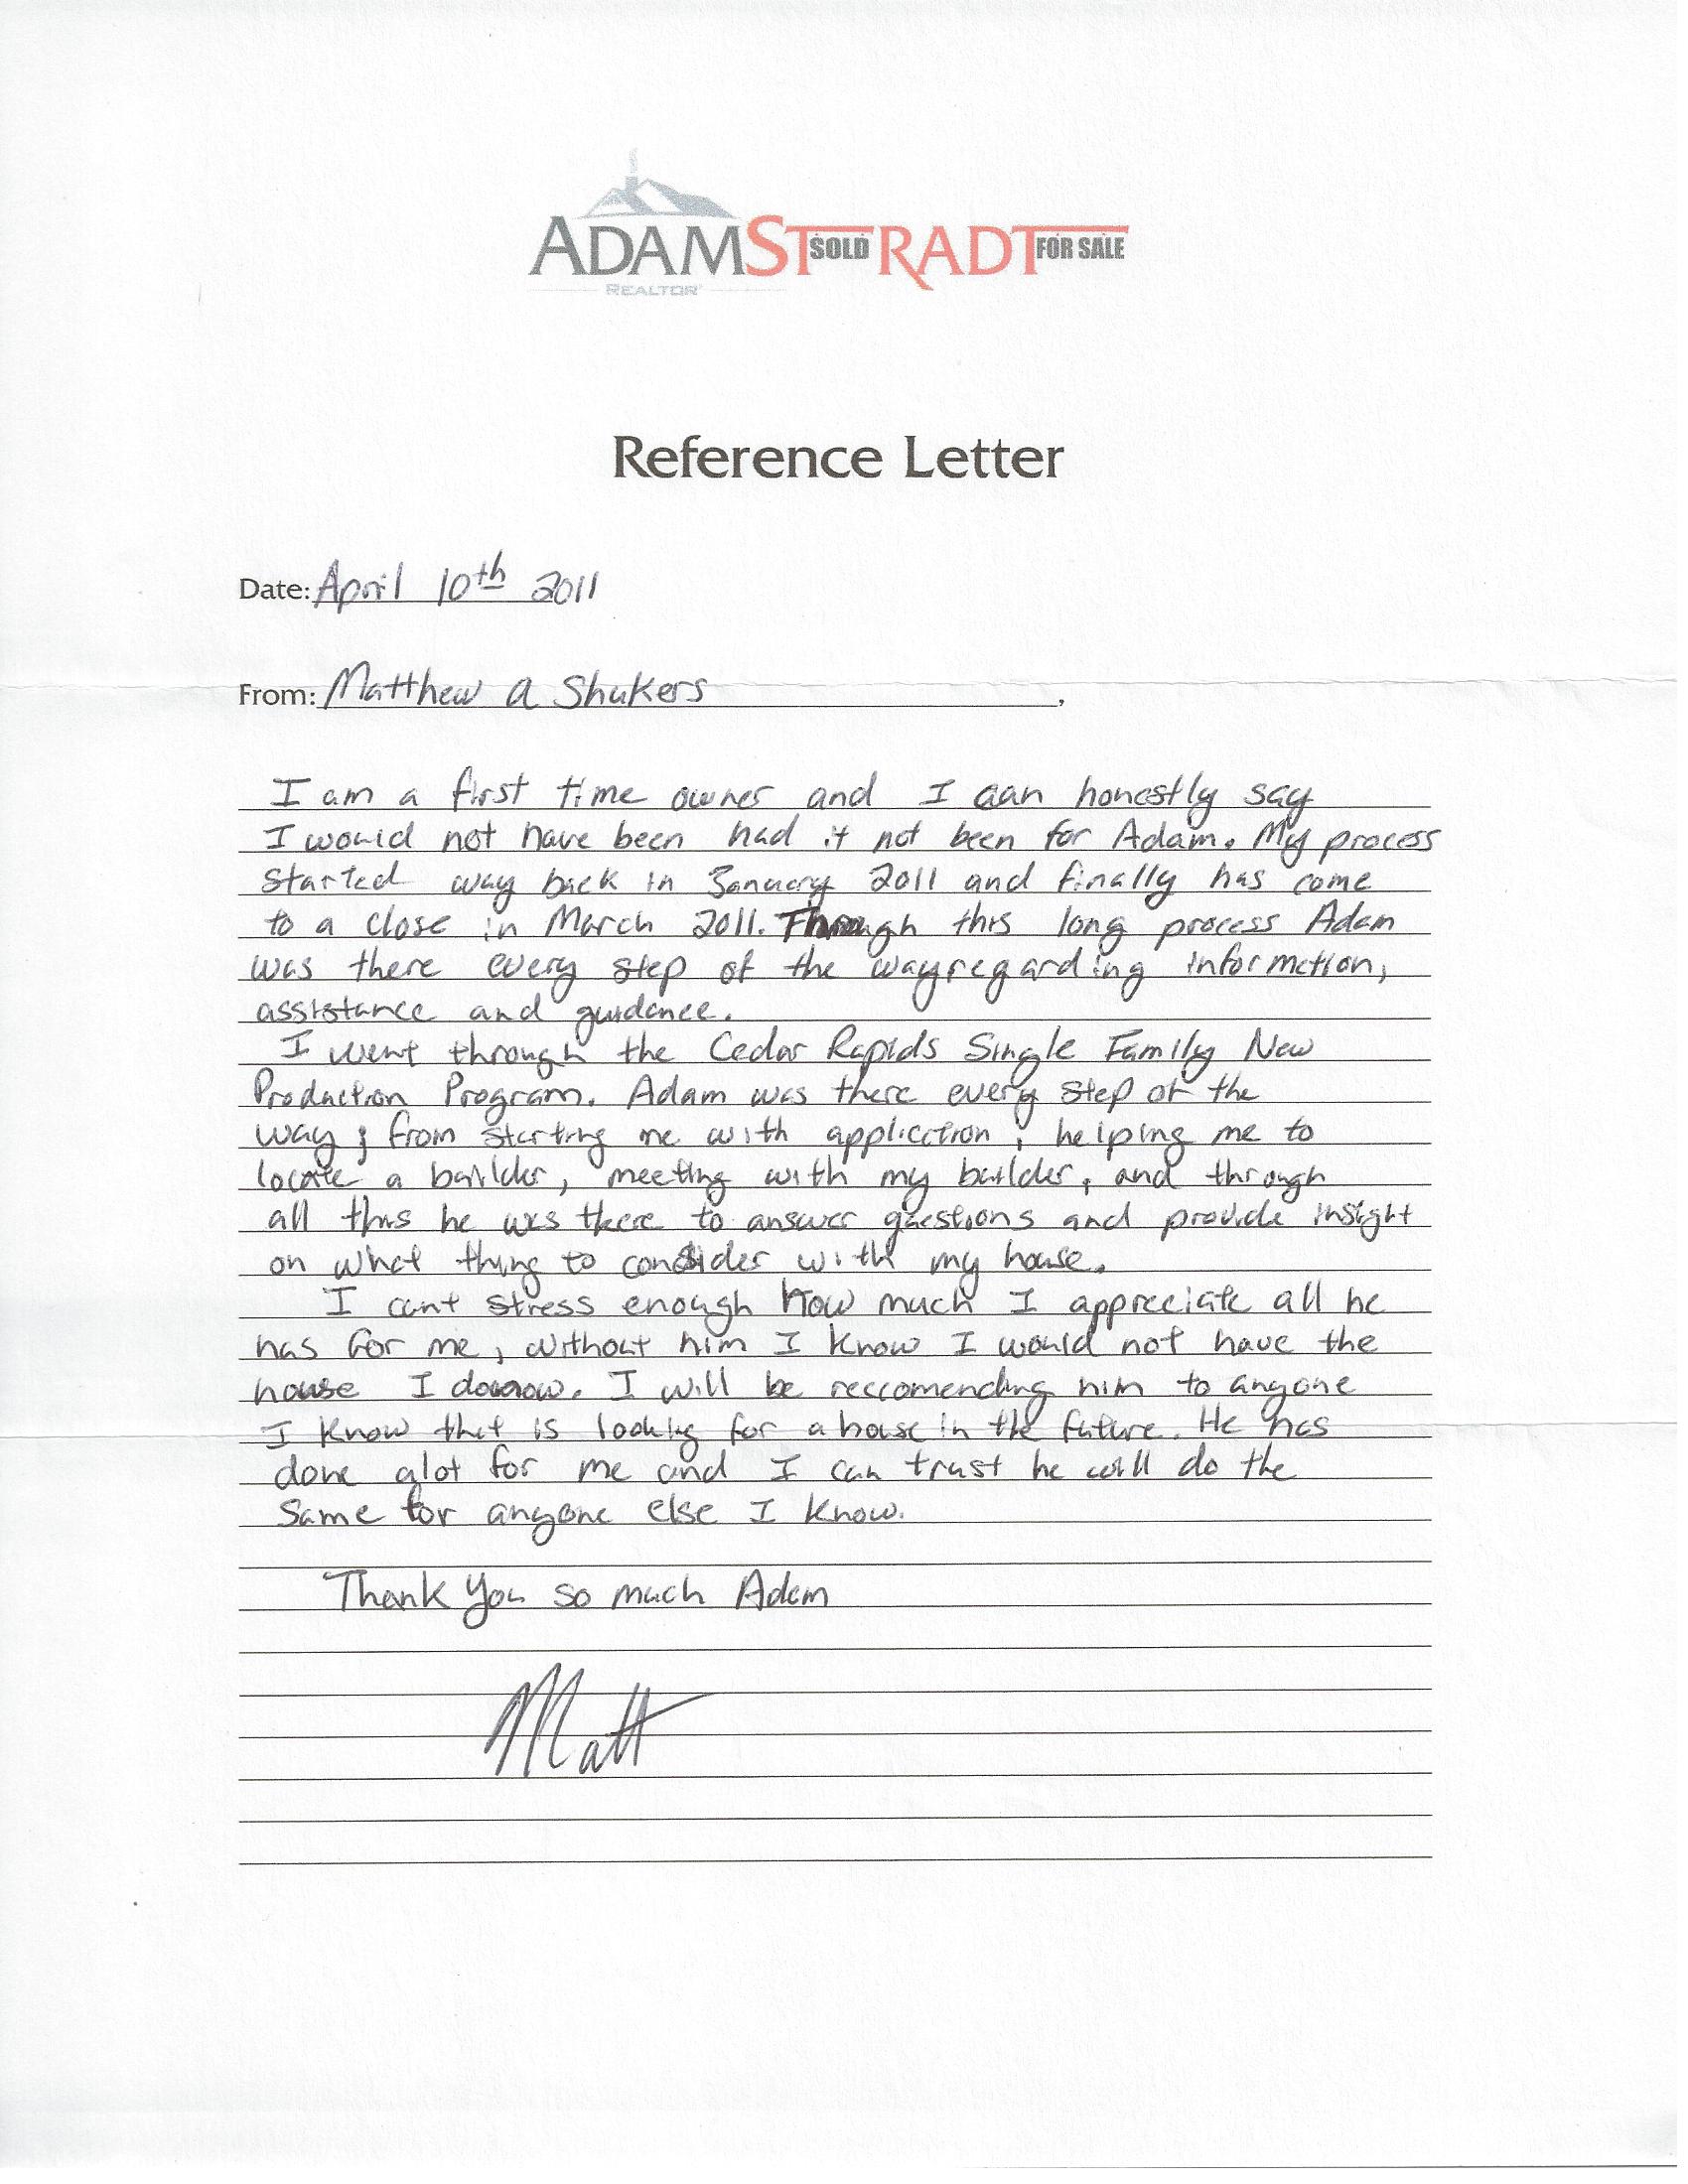 ADAM STRADT SOLD FOR SALE
REALTOR
Reference Letter
Date: April 10th 2011
From: Matthew A Shukers,
I am a first time owner and I can honestly say
I would not have been had it not been for Adam. My process
started way back in January 2011 and finally has come
to a close in March 2011. Through this long process Adam
was there every step of the way regarding information,
assistance and guidance.
I went through the Cedar Rapids Single Family New
Production Program. Adam was there every step of the
way; from starting me with application, helping me to
locate a builder, meeting with my builder, and through
all this he was there to answer questions and provide insight
on what thing to consider with my house.
I cant stress enough how much I appreciate all he
has for me, without him I know I would not have the
house I do now. I will be reccomending him to anyone
I know that is looking for a house in the future. He has
done alot for me and I can trust he will do the
same for anyone else I know.
Thank You so much Adam
Matt